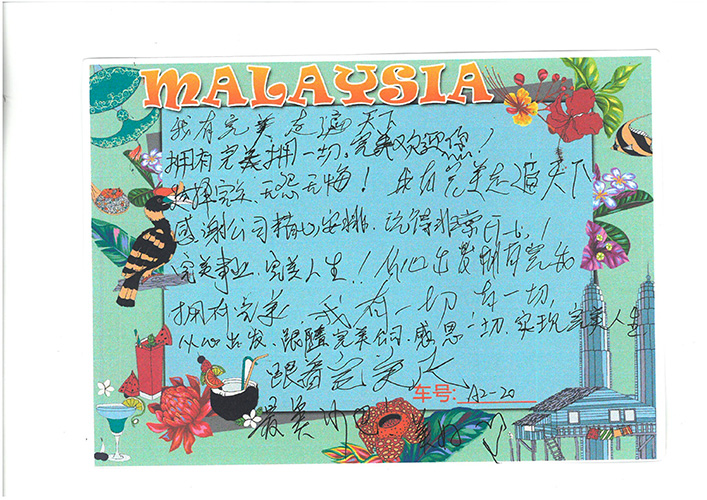 MALAYSIA
我有完美走遍天下
拥有完美拥一切。完美欢迎您！
选择完美、无怨无悔！ 我有完美走遍天下
感谢公司精心安排、玩得非常开心！
完美事业、完美人生！从心出发拥有完美
拥有完美 我有一切 有一切，
从心出发、跟随完美公司、感恩一切、实现完美人生
跟着完美
车号: A2-20
最美 美好